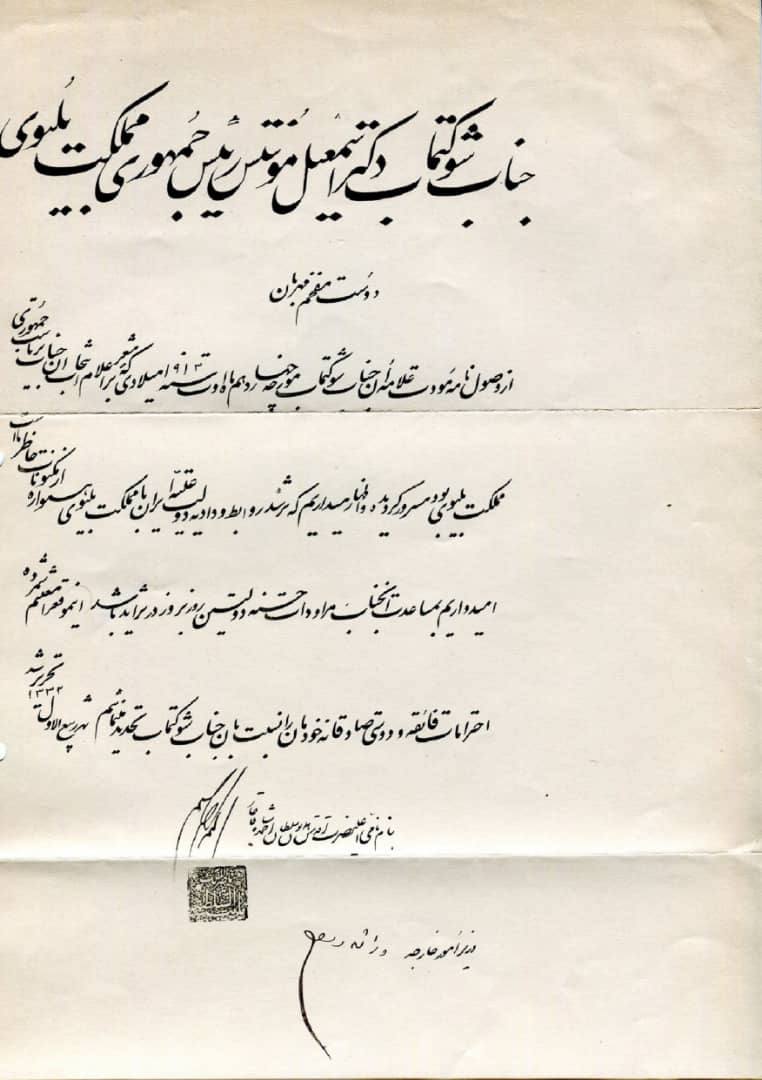 جناب شوکتمآب دکتر اسمعیل مونتس رئیس جمهوری مملکت بلیوی
دوست مفخم مهربان
از وصول نامه مودت علامه آن جناب شوکتمآب مورخه چهاردهم ماه اوت سنه ۱۹۱۳ میلادی که مشعر بر اعلام انتخاب آن جناب بریاست جمهوری
مملکت بلیوی بود مسرور گردیده و اظهار میداریم که ترشید روابط ودادیه دولت علیه ایران با مملکت بلیوی همواره از مکنونات خاطر ما است
امیدواریم بمساعدت آنجناب مراودات حسنه دولتین روز بروز در تزاید باشد اینموقع را مغتنم شمرده
احترامات فائقه و دوستی صادقانه خودمان را نسبت بآن جناب شوکتمآب تجدید مینمائیم شهر ربیع الاول ۱۳۳۲ تحریر شد
بنام نامی اعلیحضرت اقدس همایون سلطان احمد شاه قاجار
وزیر امور خارجه